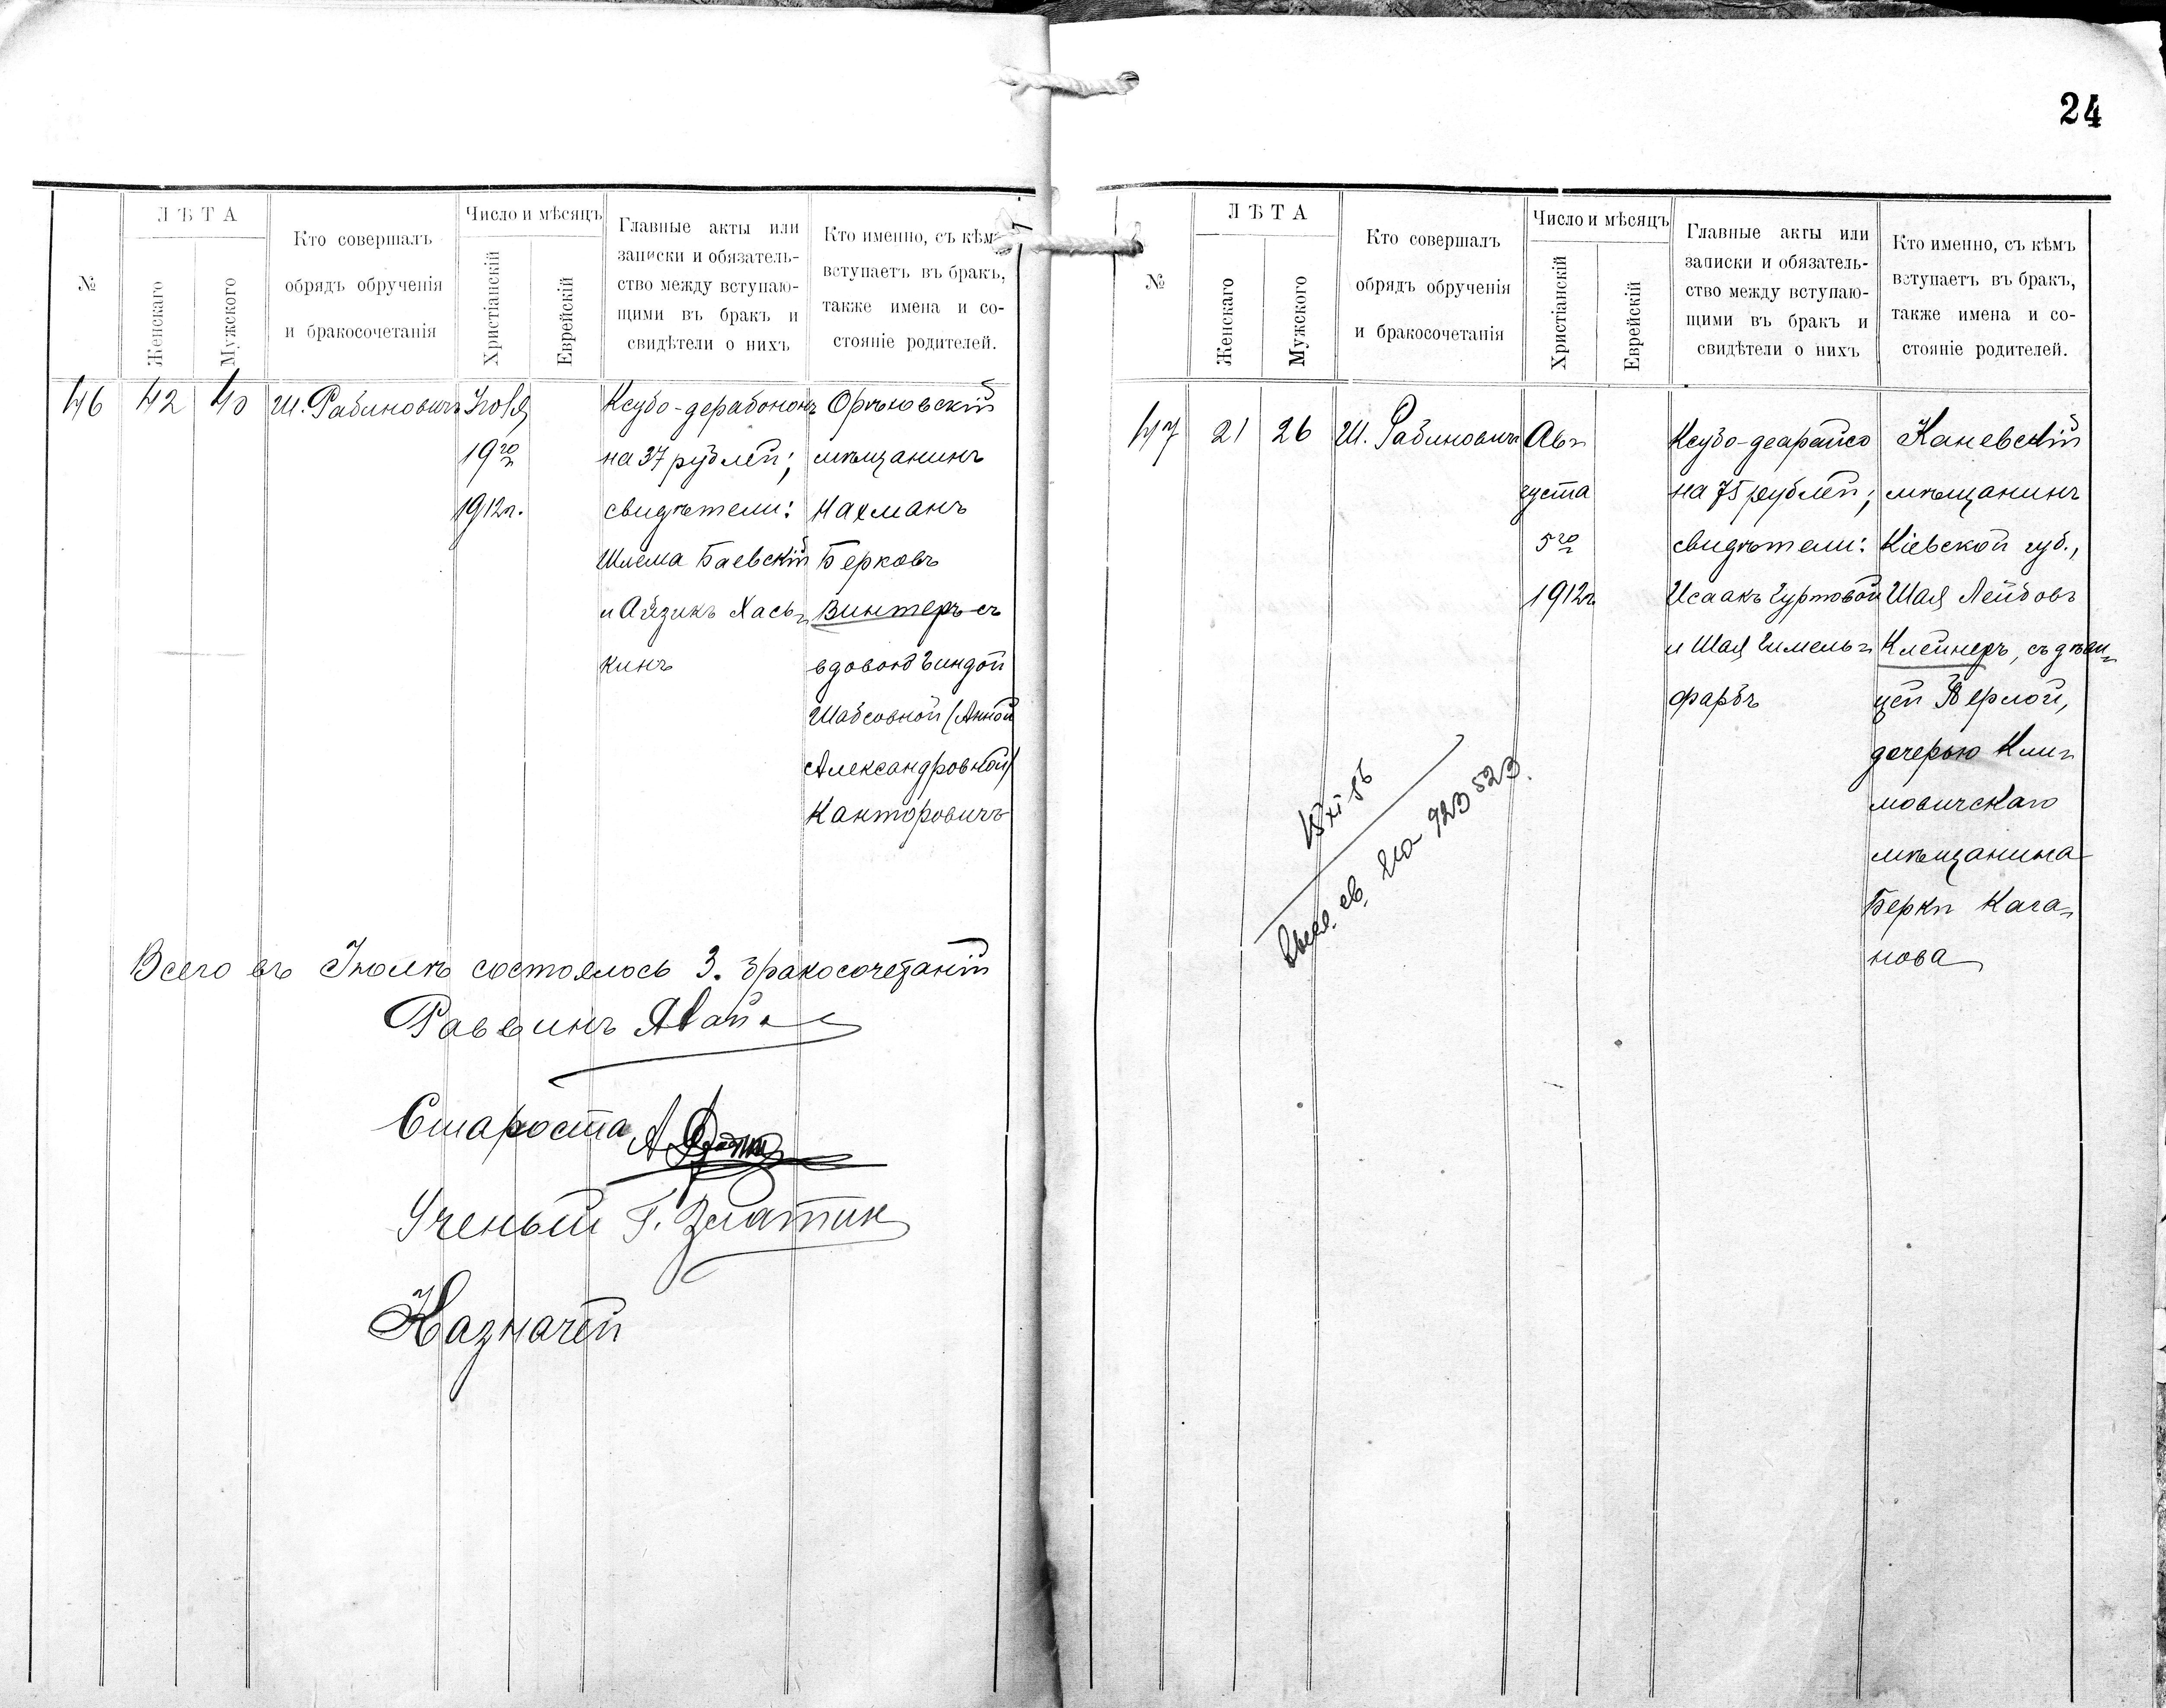 24
№
ЛѢТА
Женскаго
Мужского
Кто совершалъ
обрядъ обрученія
и бракосочетанія
Число и мѣсяцъ
Христіанскій
Еврейскій
Главные акты или
записки и обязатель-
ство между вступаю-
щими въ бракъ и
свидѣтели о нихъ
Кто именно, съ кѣмъ
вступаетъ въ бракъ,
также имена и со-
стояніе родителей.
46
42
40
Ш. Рабиновичъ
Іюля
19го
1912г.
Ксубо-дерабононъ
на 37 рублей;
свидѣтели:
Шлема Баевскій
и Айзикъ Хась-
кинъ
мѣщанинъ
Нахманъ
Берковъ
Винтеръ съ
вдовою Гиндой
Шабсовной (Анной
Александровной)
Канторовичъ
Всего въ Іюлѣ состоялось 3. бракосочетаній
Раввинъ
Староста
Ученый Г. Златин
Казначей
№
ЛѢТА
Женскаго
Мужского
Кто совершалъ
обрядъ обрученія
и бракосочетанія
Число и мѣсяцъ
Христіанскій
Еврейскій
Главные акты или
записки и обязатель-
ство между вступаю-
щими въ бракъ и
свидѣтели о нихъ
Кто именно, съ кѣмъ
вступаетъ въ бракъ,
также имена и со-
стояніе родителей.
47
21
26
Ш. Рабиновичъ
Ав-
густа
5го
1912г
Ксубо-деарайсо
на 75 рублей;
свидѣтели:
Исаакъ Гуртовой
и Шая Гимель-
фарбъ
Каневскій
мѣщанинъ
Кіевской губ.,
Шая Лейбовъ
Клейнеръ, съ дѣви-
цей
дочерью Кли-
мовичскаго
мѣщанина
Берки Кага-
нова